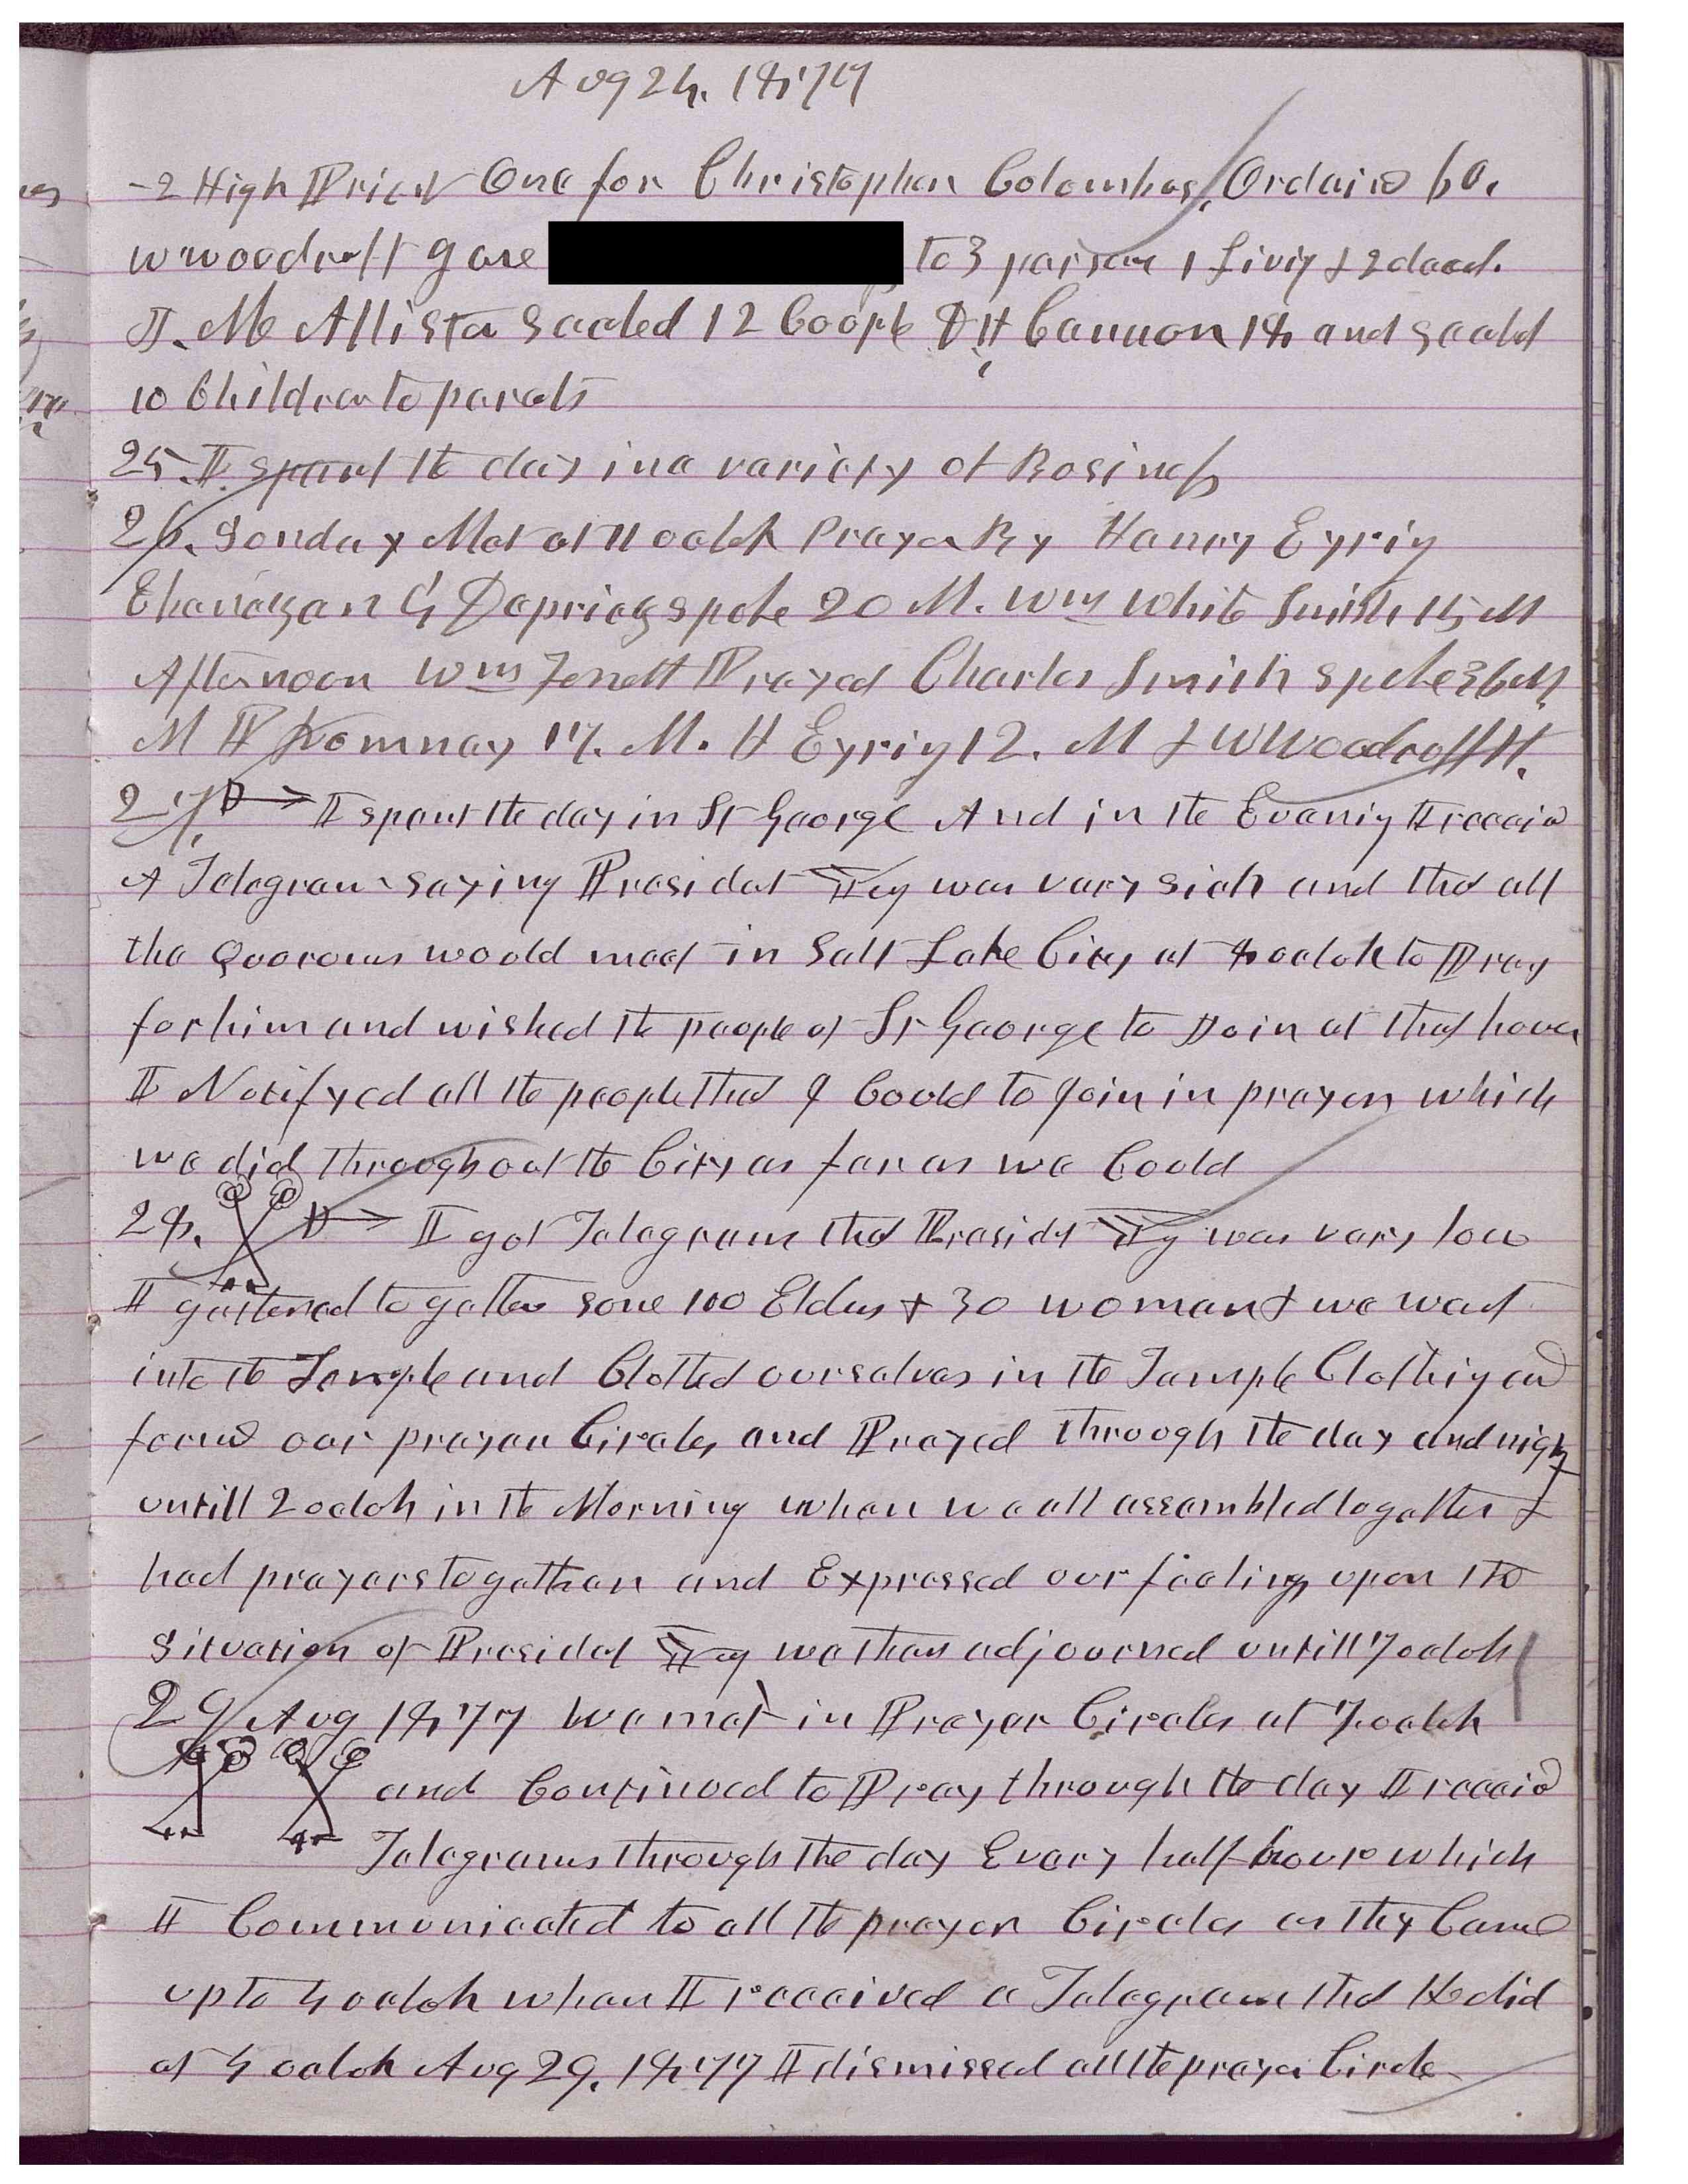 Aug 24. 1877
-2 High Priest One for Christopher Columbus, Ordaind 60.
W Woodruff gave to 3 persons 1 Living & 2 dead.
J. McAllister Sealed 12 Couple D H Cannon 18 and Sealed
10 Children to parents
25. I spent the day in a variety of Business
26. Sunday Met at 11 oclok Prayer By Henry Eyring
G Depriezs spoke 20 M. Wm White Smith 15 M
Afternoon Wm Prayed Charles Smith spoke 36 M,
M P Romnay 17. M. H Eyring 12. M & W Woodruff
27. I spent the day in St George And in the Evening I receivd
A Telegram saying President was very sick and that all
the Quorums would meet in Salt Lake City at 8 oclok to Pray
for him and wished the people of St George to Join at that hour
I Notifyed all the people that I Could to Join in prayer which
we did throughout the City as far as we Could
28. I got Telegram that Presidet was very low
I gathered together some 100 Elders & 30 women & we went
into the Temple and Clothed ourselves in the Temple Clothing and
formd our prayer Circles, and Prayed through the day and night
untill 2 oclok in the Morning when we all assembled together &
had prayers together and Expressed our feelings upon the
Situation of Presidet we then adjourned untill 7 oclok
29 Aug 1877 We met in Prayer Circles at 7 oclok
and Continued to Pray through the day I receivd
Telegrams through the day Every half hour which
I Communicated to all the prayer Circles as they Came
up to 4 oclok when I received a Telegram that He died
at 4 oclok Aug 29, 1877 I dismissed all the prayer Circle